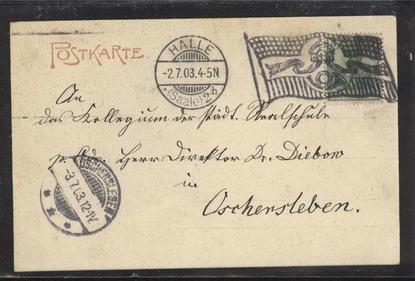 POSTKARTE
HALLE
-2.7.03.4-5N
(Saale) 2 h
An
das Kollegium der städt. Realschule
p. Ad. Herr Direktor Dr. Diebow
in
Oschersleben.
OSCHERSLEBEN
-3.7.03.12-1V.